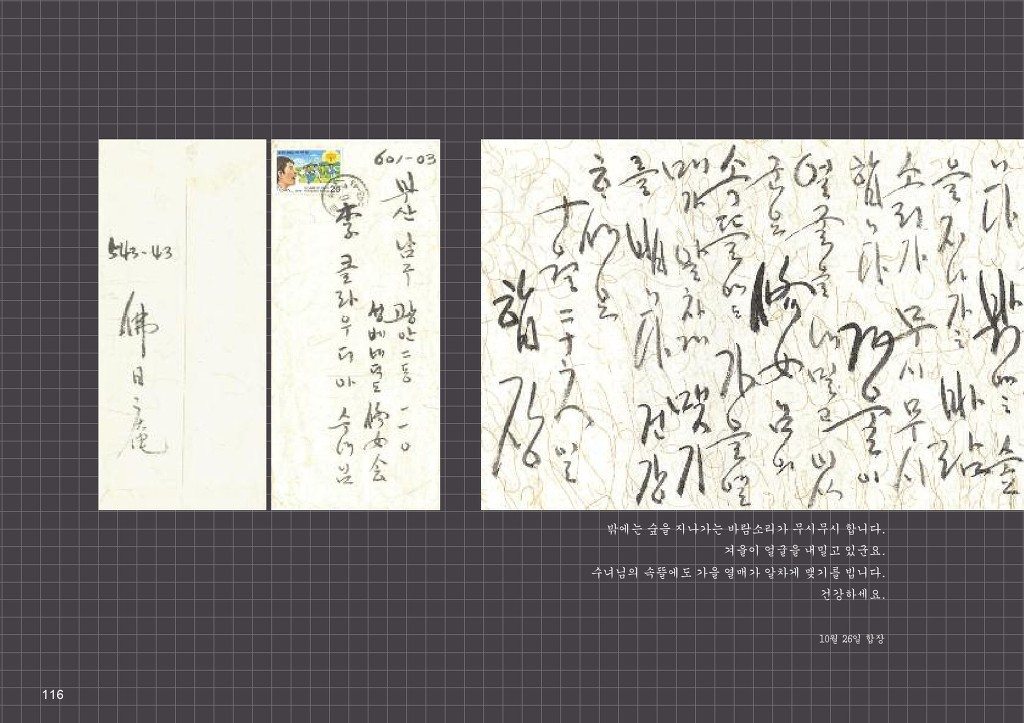 543-43
佛日庵
601-03
부산 남구 광안二동 一一〇
성베네딕도 修女会
李 클라우디아 수녀님
니다 밖에는 숲
을 지나가는 바람
소리가 무시무시
합니다 겨울이
얼굴을 내밀고 있
군요 修女님의
속뜰에도 가을 열
매가 알차게 맺기
를 빕니다 건강
하세요
十월 二十六일
합장
밖에는 숲을 지나가는 바람소리가 무시무시 합니다.
겨울이 얼굴을 내밀고 있군요.
수녀님의 속뜰에도 가을 열매가 알차게 맺기를 빕니다.
건강하세요.
10월 26일 합장
116